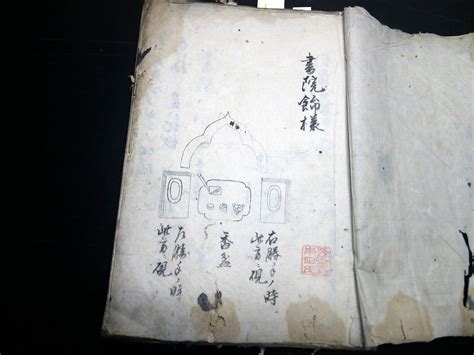 書院飾様
右勝手ノ時
此方硯
香盆
左勝手ノ時
此方硯